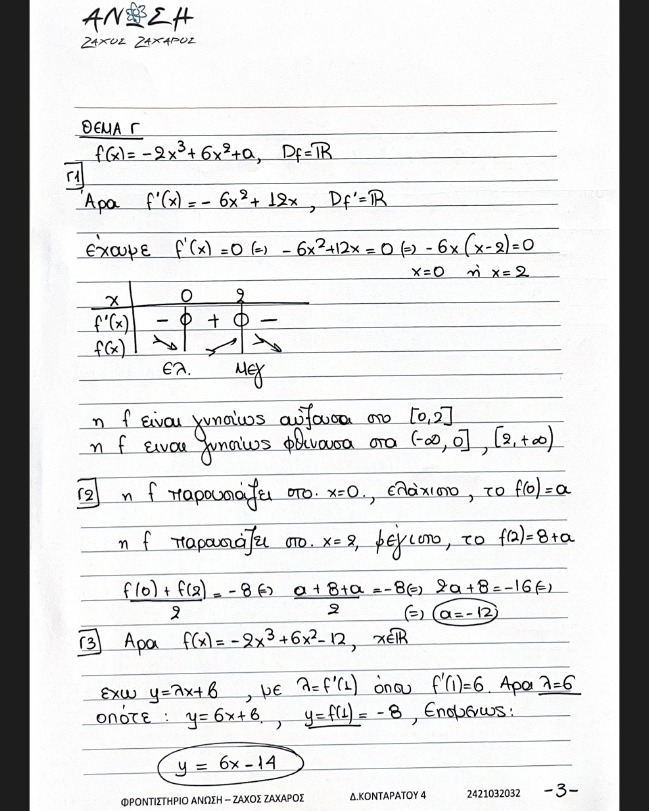 ΑΝΩΣΗ
ΖΑΧΟΣ ΖΑΧΑΡΟΣ
ΘΕΜΑ Γ
f(x) = -2x³ + 6x² + α, Df = ℝ
Γ1
Άρα f'(x) = - 6x² + 12x , Df' = ℝ
έχουμε f'(x) = 0 (=) - 6x² + 12x = 0 (=) - 6x (x-2) = 0
x=0 ή x=2
x 0 2
f'(x) - 0 + 0 -
f(x) ↘ ↗ ↘
Ελ. Μεγ
η f είναι γνησίως αύξουσα στο [0,2]
η f είναι γνησίως φθίνουσα στα (-∞, 0] , [2, +∞)
Γ2 η f παρουσιάζει στο. x=0., ελάχιστο, το f(0) = α
η f παρουσιάζει στο. x=2, μέγιστο, το f(2) = 8+α
f(0) + f(2) / 2 = -8 (=) α + 8 + α / 2 = -8 (=) 2α + 8 = -16 (=)
(=) α = -12
Γ3 Άρα f(x) = -2x³ + 6x² - 12 , x∈ℝ
έχω y = λx + β , με λ = f'(1) όπου f'(1) = 6. Άρα λ = 6
οπότε : y = 6x + β. , y = f(1) = -8 , Επομένως:
y = 6x - 14
ΦΡΟΝΤΙΣΤΗΡΙΟ ΑΝΩΣΗ – ΖΑΧΟΣ ΖΑΧΑΡΟΣ Δ.ΚΟΝΤΑΡΑΤΟΥ 4 2421032032 -3-